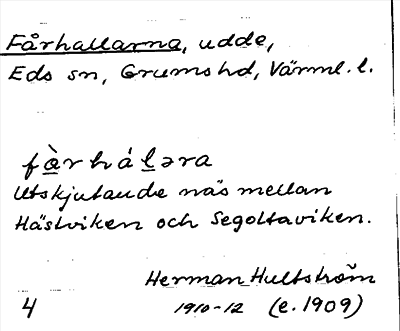 Fårhallarna, udde,
Eds sn, Grums hd, Värml. l.
fàrháləra
Utskjutande näs mellan
Hästviken och Segoltaviken.
Herman Hultström
4 1910-12 (e. 1909)